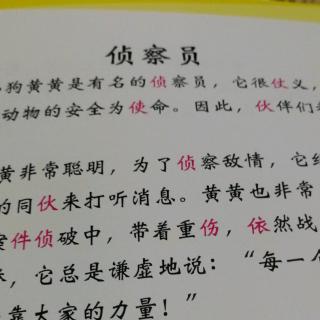 侦察员
狗黄黄是有名的侦察员，它很仗义，
动物的安全为使命。因此，伙伴们
黄非常聪明，为了侦察敌情，它
的同伙来打听消息。黄黄也非常
案件侦破中，带着重伤，依然战
，它总是谦虚地说：“每一个
靠大家的力量！”